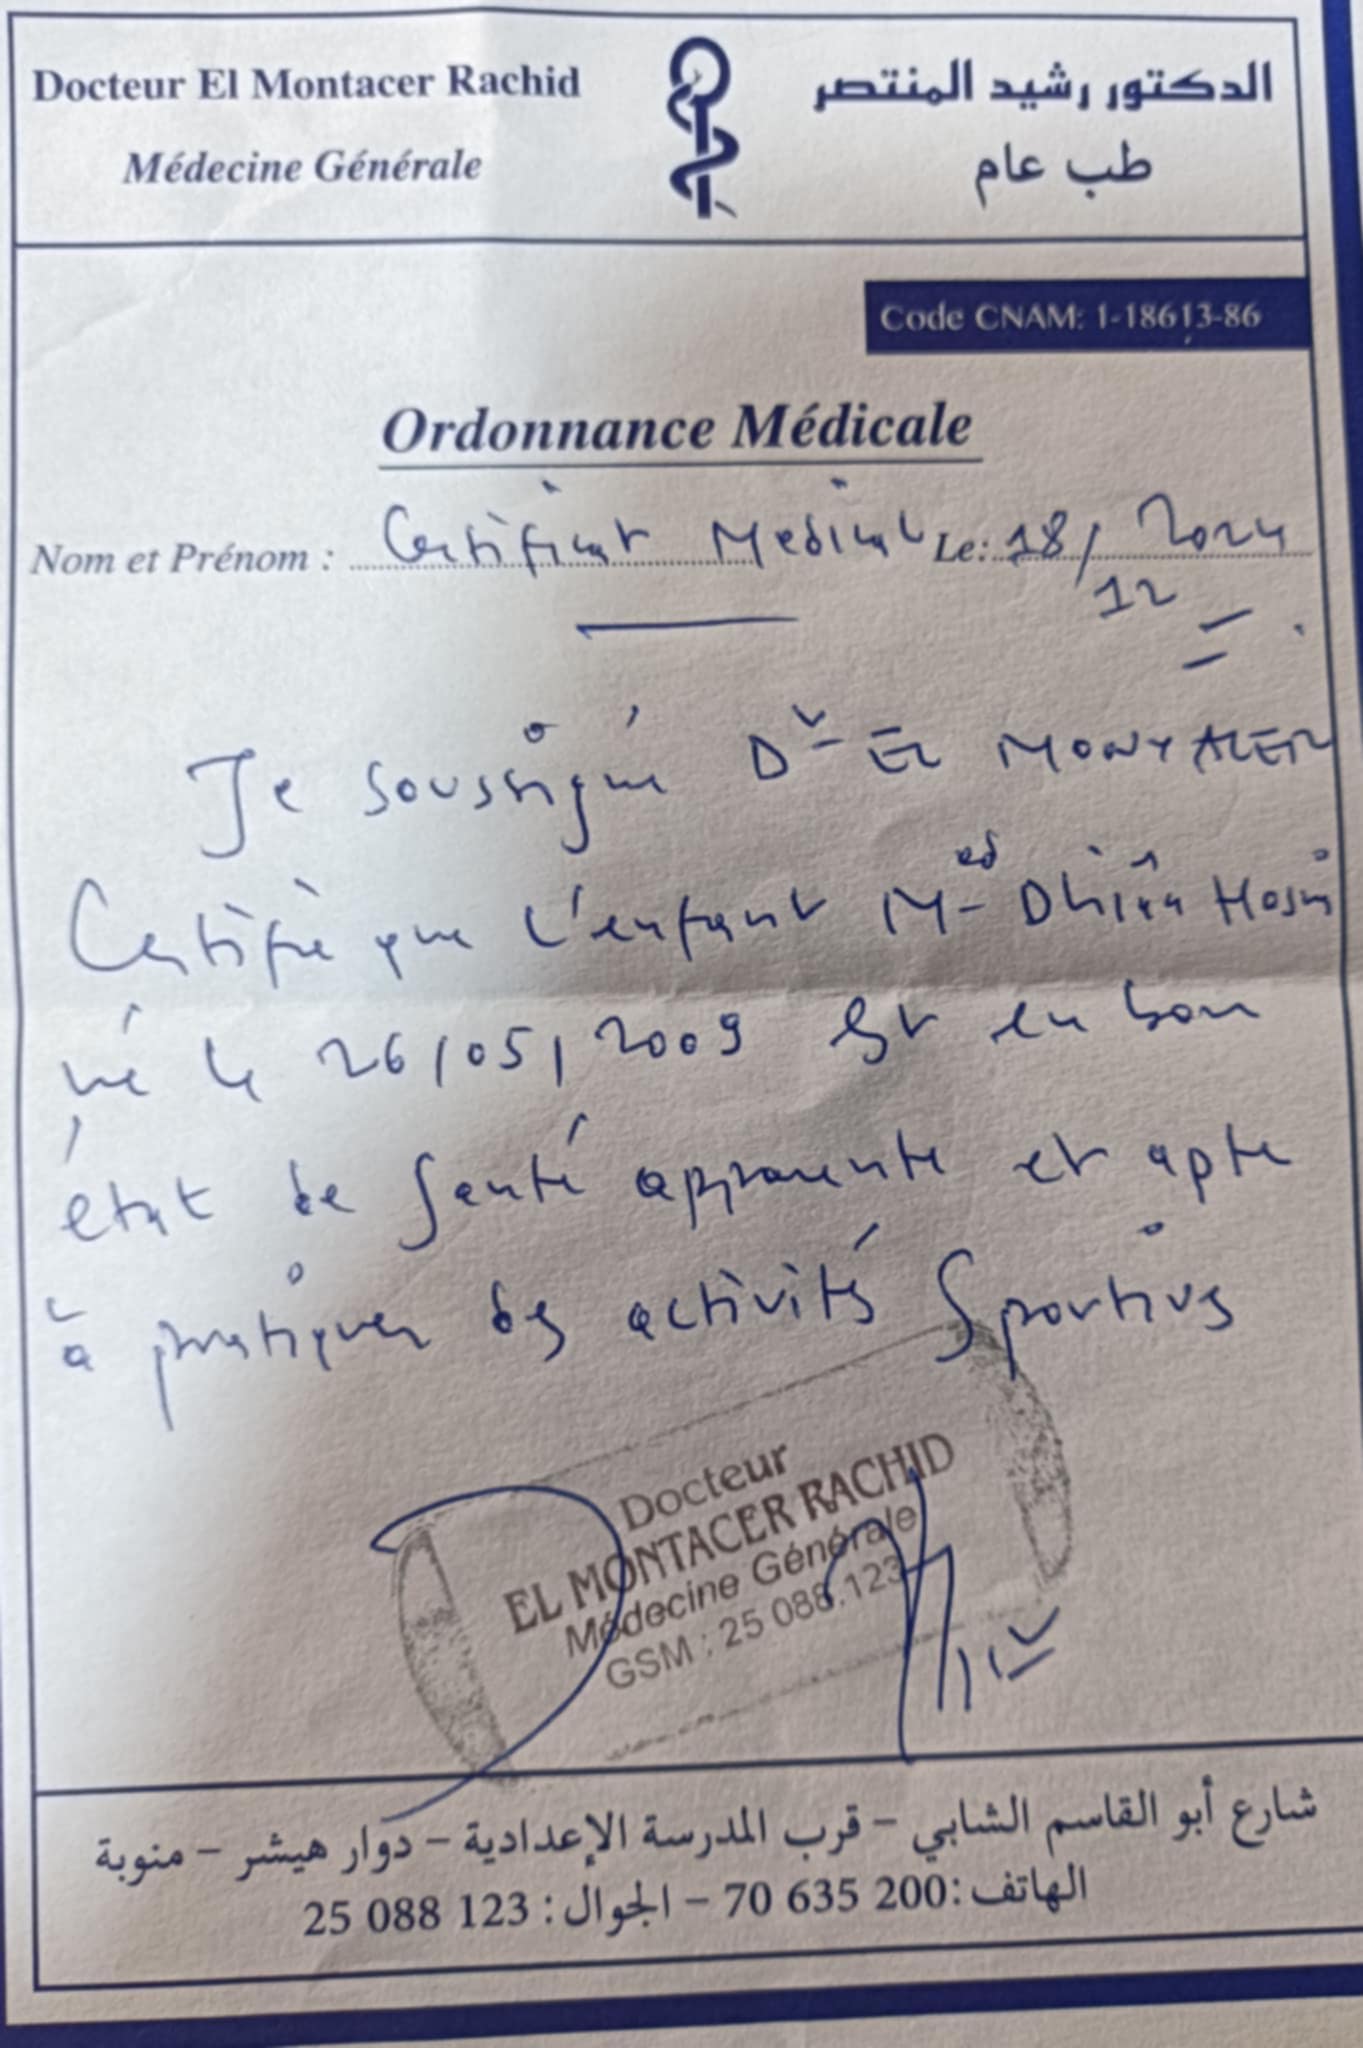 Docteur El Montacer Rachid
Médecine Générale
الدكتور رشيد المنتصر
طب عام
Code CNAM: 1-18613-86
Ordonnance Médicale
Nom et Prénom : Certificat Medical Le: 18/12/2024
Je soussigné Dr EL MONTACER
Certifie que l'enfant Med Dhiâa
né le 26/05/2009 Est en bon
état de Santé apparente et apte
à pratiquer des activités Sportives
Docteur
EL MONTACER RACHID
Médecine Générale
GSM : 25 088.123
شارع أبو القاسم الشابي - قرب المدرسة الإعدادية - دوار هيشر - منوبة
الهاتف: 200 635 70 - الجوال: 123 088 25